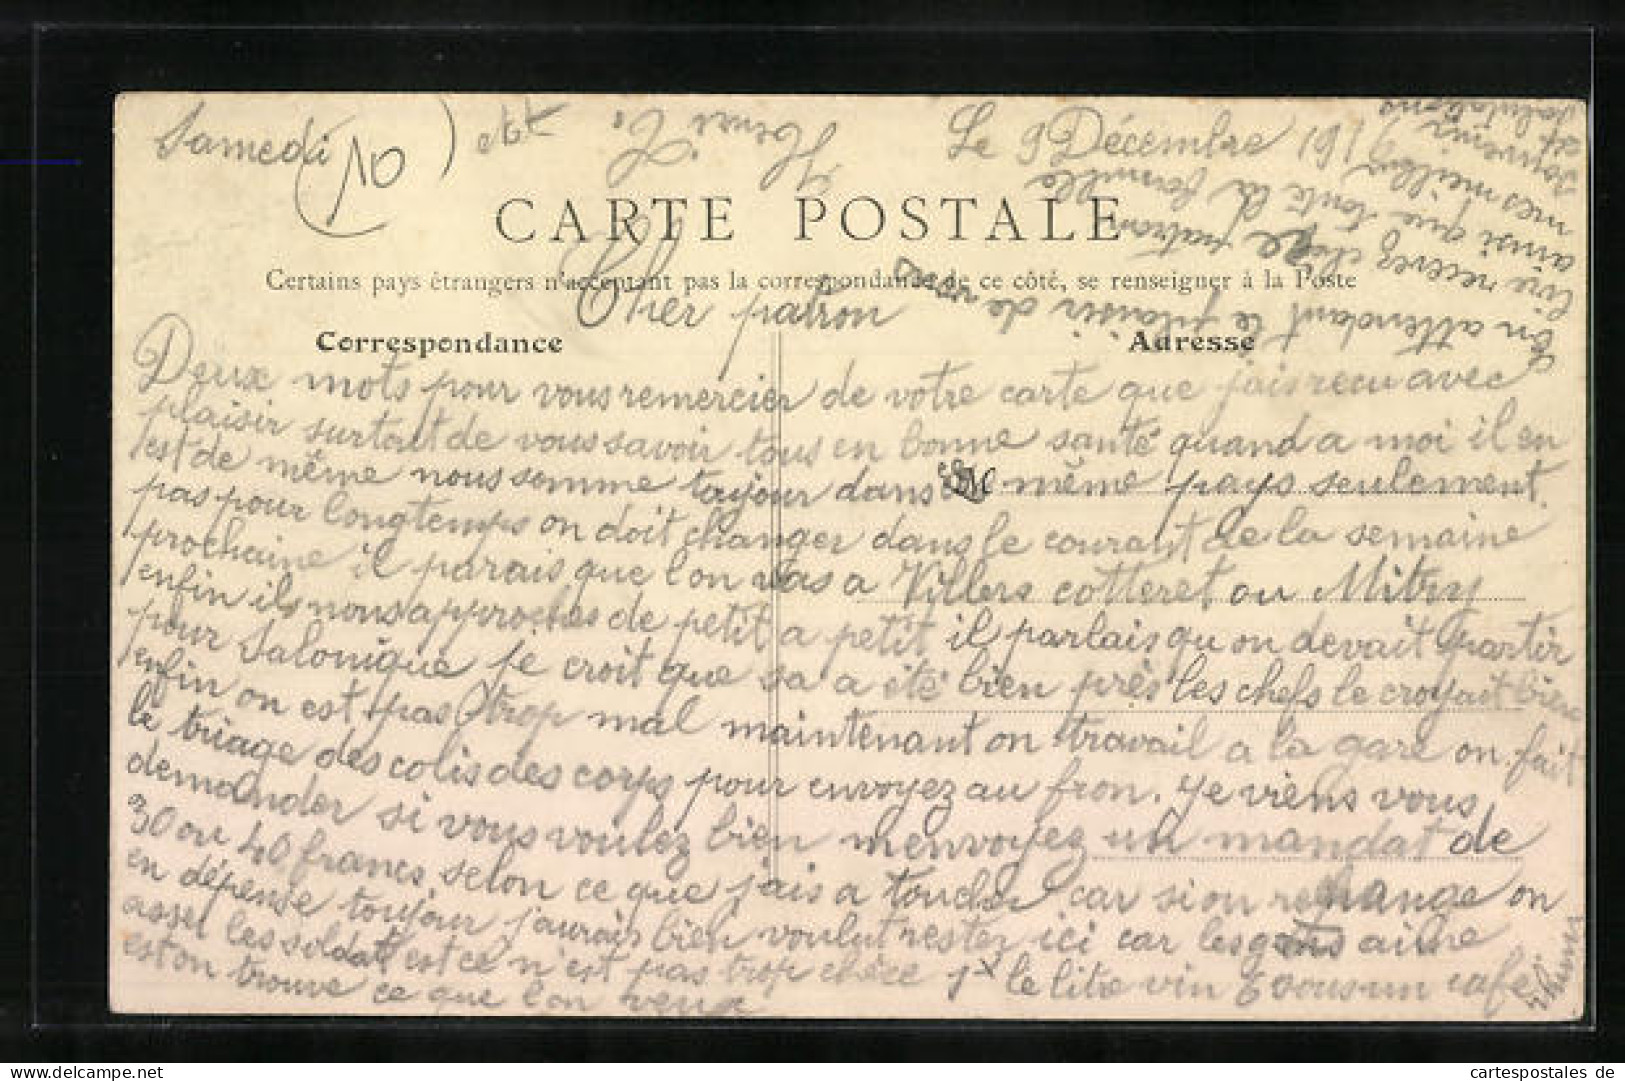 Samedi
10
Le 9 Décembre 191
CARTE POSTALE
Certains pays étrangers n'acceptant pas la correspondance de ce côté, se renseigner à la Poste
Cher patron
Correspondance
Adresse
Deux mots pour vous remercier de votre carte que jais recu avec
plaisir surtout de vous savoir tous en bonne santé quand a moi il en
est de même nous somme toujour dans le même pays seulement
pas pour longtemps on doit changer dans le courant de la semaine
prochaine il parais que l'on vas a Villers cotteret ou Mitry
enfin ils nous approches de petit a petit il parlais qu on devait partir
pour Salonique je croit que sa a été bien près les chefs le croyait bien
enfin on est pas trop mal maintenant on travail a la gare on fait
le triage des colis des corps pour envoyez au fron. Je viens vous
demander si vous voulez bien m'envoyez un mandat de
30 ou 40 francs selon ce que jais a toucher car si on rechange on
en dépense toujour j'aurais bien voulut rester ici car les gens aime
assez les soldat et ce n'est pas trop chère 1f le litre vin sous un café
est on trouve ce que l'on veux
En attendant le plaisir de vous
lire recevez cher patron
ainsi que toute la famille
mes meilleur
souvenir
et
salutations